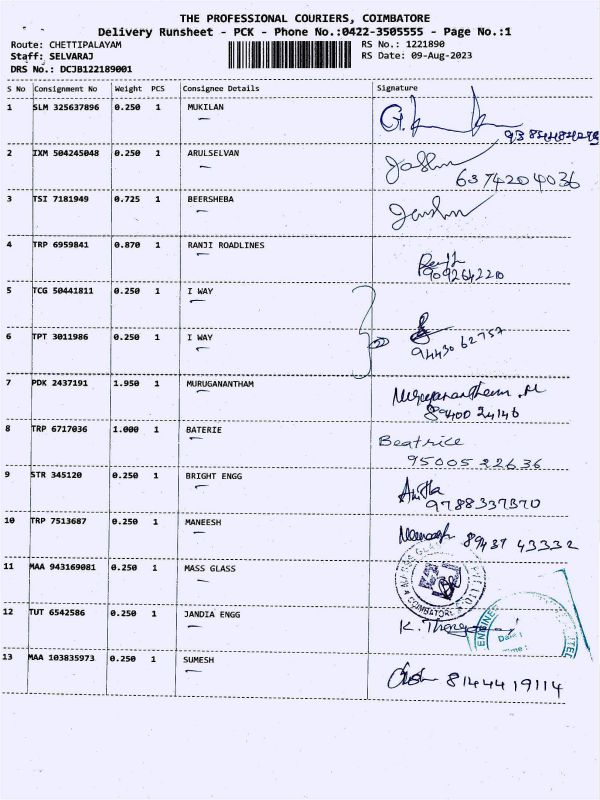 THE PROFESSIONAL COURIERS, COIMBATORE
Delivery Runsheet - PCK - Phone No.:0422-3505555 - Page No.:1
Route: CHETTIPALAYAM RS No.: 1221890
Staff: SELVARAJ RS Date: 09-Aug-2023
DRS No.: DCJB122189001
S No Consignment No Weight PCS Consignee Details Signature
1 SLM 325637896 0.250 1 MUKILAN
2 IXM 504245048 0.250 1 ARULSELVAN
6374204036
3 TSI 7181949 0.725 1 BEERSHEBA
4 TRP 6959841 0.870 1 RANJI ROADLINES
9092642210
5 TCG 50441811 0.250 1 I WAY
6 TPT 3011986 0.250 1 I WAY
94430 62757
7 PDK 2437191 1.950 1 MURUGANANTHAM
89400 24146
8 TRP 6717036 1.000 1 BATERIE Beatrice
95005 22636
9 STR 345120 0.250 1 BRIGHT ENGG
9788337370
10 TRP 7513687 0.250 1 MANEESH 89437 43332
11 MAA 943169081 0.250 1 MASS GLASS
COIMBATORE
12 TUT 6542586 0.250 1 JANDIA ENGG
Date :
13 MAA 103835973 0.250 1 SUMESH 8144419114